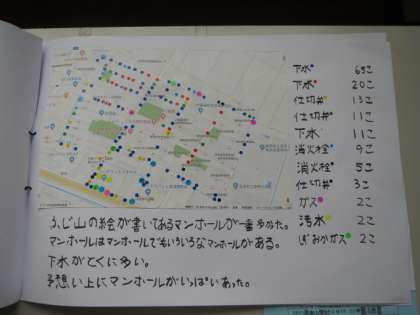 下水 65こ
下水 20こ
仕切弁 13こ
仕切弁 11こ
下水 11こ
消火栓 9こ
消火栓 5こ
仕切弁 3こ
ガス 2こ
汚水 2こ
しずおかガス 2こ
ふじ山の絵が書いてあるマンホールが一番多かった。
マンホールはマンホールでもいろいろなマンホールがある。
下水がとくに多い。
予想い上にマンホールがいっぱいあった。